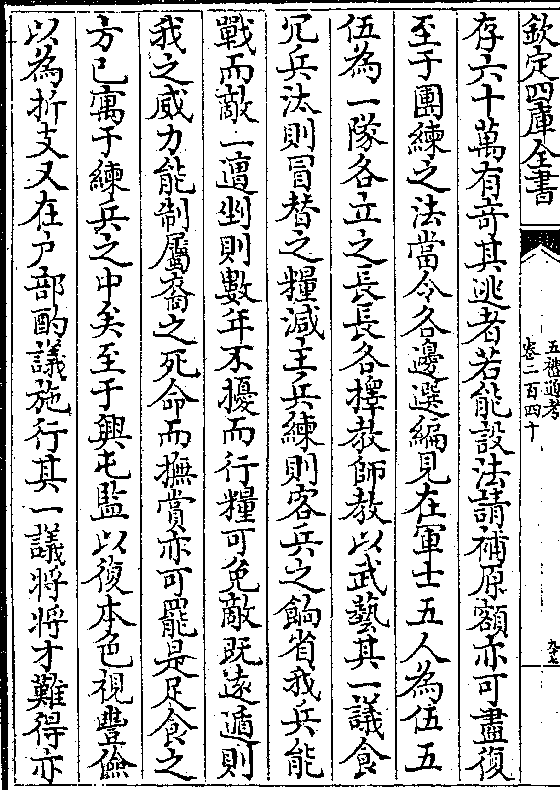 欽定四庫全書
五禮通考
卷二百四十
存六十萬有竒其逃者若能設法請補原額亦可盡復
至于團練之法當令各邊選編見在軍士五人為伍五
伍為一隊各立之長長各擇教師教以武藝其一議食
冗兵汰則冒替之糧減主兵練則客兵之餉省我兵能
戰而敵一遭剉則數年不擾而行糧可免敵既逺遁則
我之威力能制屬裔之死命而撫賞亦可罷是足食之
方已寓于練兵之中矣至于興屯鹽以復本色視豐儉
以為折支又在户部酌議施行其一議將將才難得亦